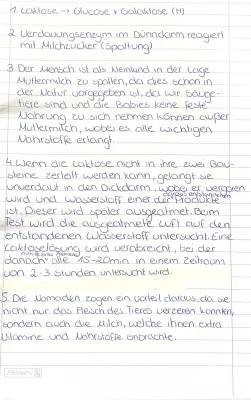 1. Laktose → Glucose + Galaktose (H)
2. Verdauungsenzym im Dünndarm reagiert
mit Milchzucker (Spaltung)
3. Der Mensch ist als Kleinkind in der Lage
Muttermilch zu spalten, da dies schon in
der Natur vorgegeben ist, da wir Säuge-
tiere sind und die Babies keine feste
Nahrung zu sich nehmen können außer
Muttermilch, wobei es alle wichtigen
Nährstoffe erlangt.
4. Wenn die Laktose nicht in ihre zwei Bau-
steine zerteilt werden kann, gelangt sie
unverdaut in den Dickdarm, wobei er vergoren
wird und Wasserstoff einer der Produkte
ist. Dieser wird später ausgeatmet. Beim
Test wird die ausgeatmete Luft auf den
entstandenen Wasserstoff untersucht. Eine
Laktoselösung wird verabreicht, bei der
danach alle 15-20min in einem Zeitraum
von 2-3 Stunden untersucht wird.
5. Die Nomaden zogen ein Vorteil daraus, da sie
nicht nur das Fleisch des Tieres verzeren konnten,
sondern auch die Milch, welche ihnen extra
Vitamine und Nährstoffe einbrachte.